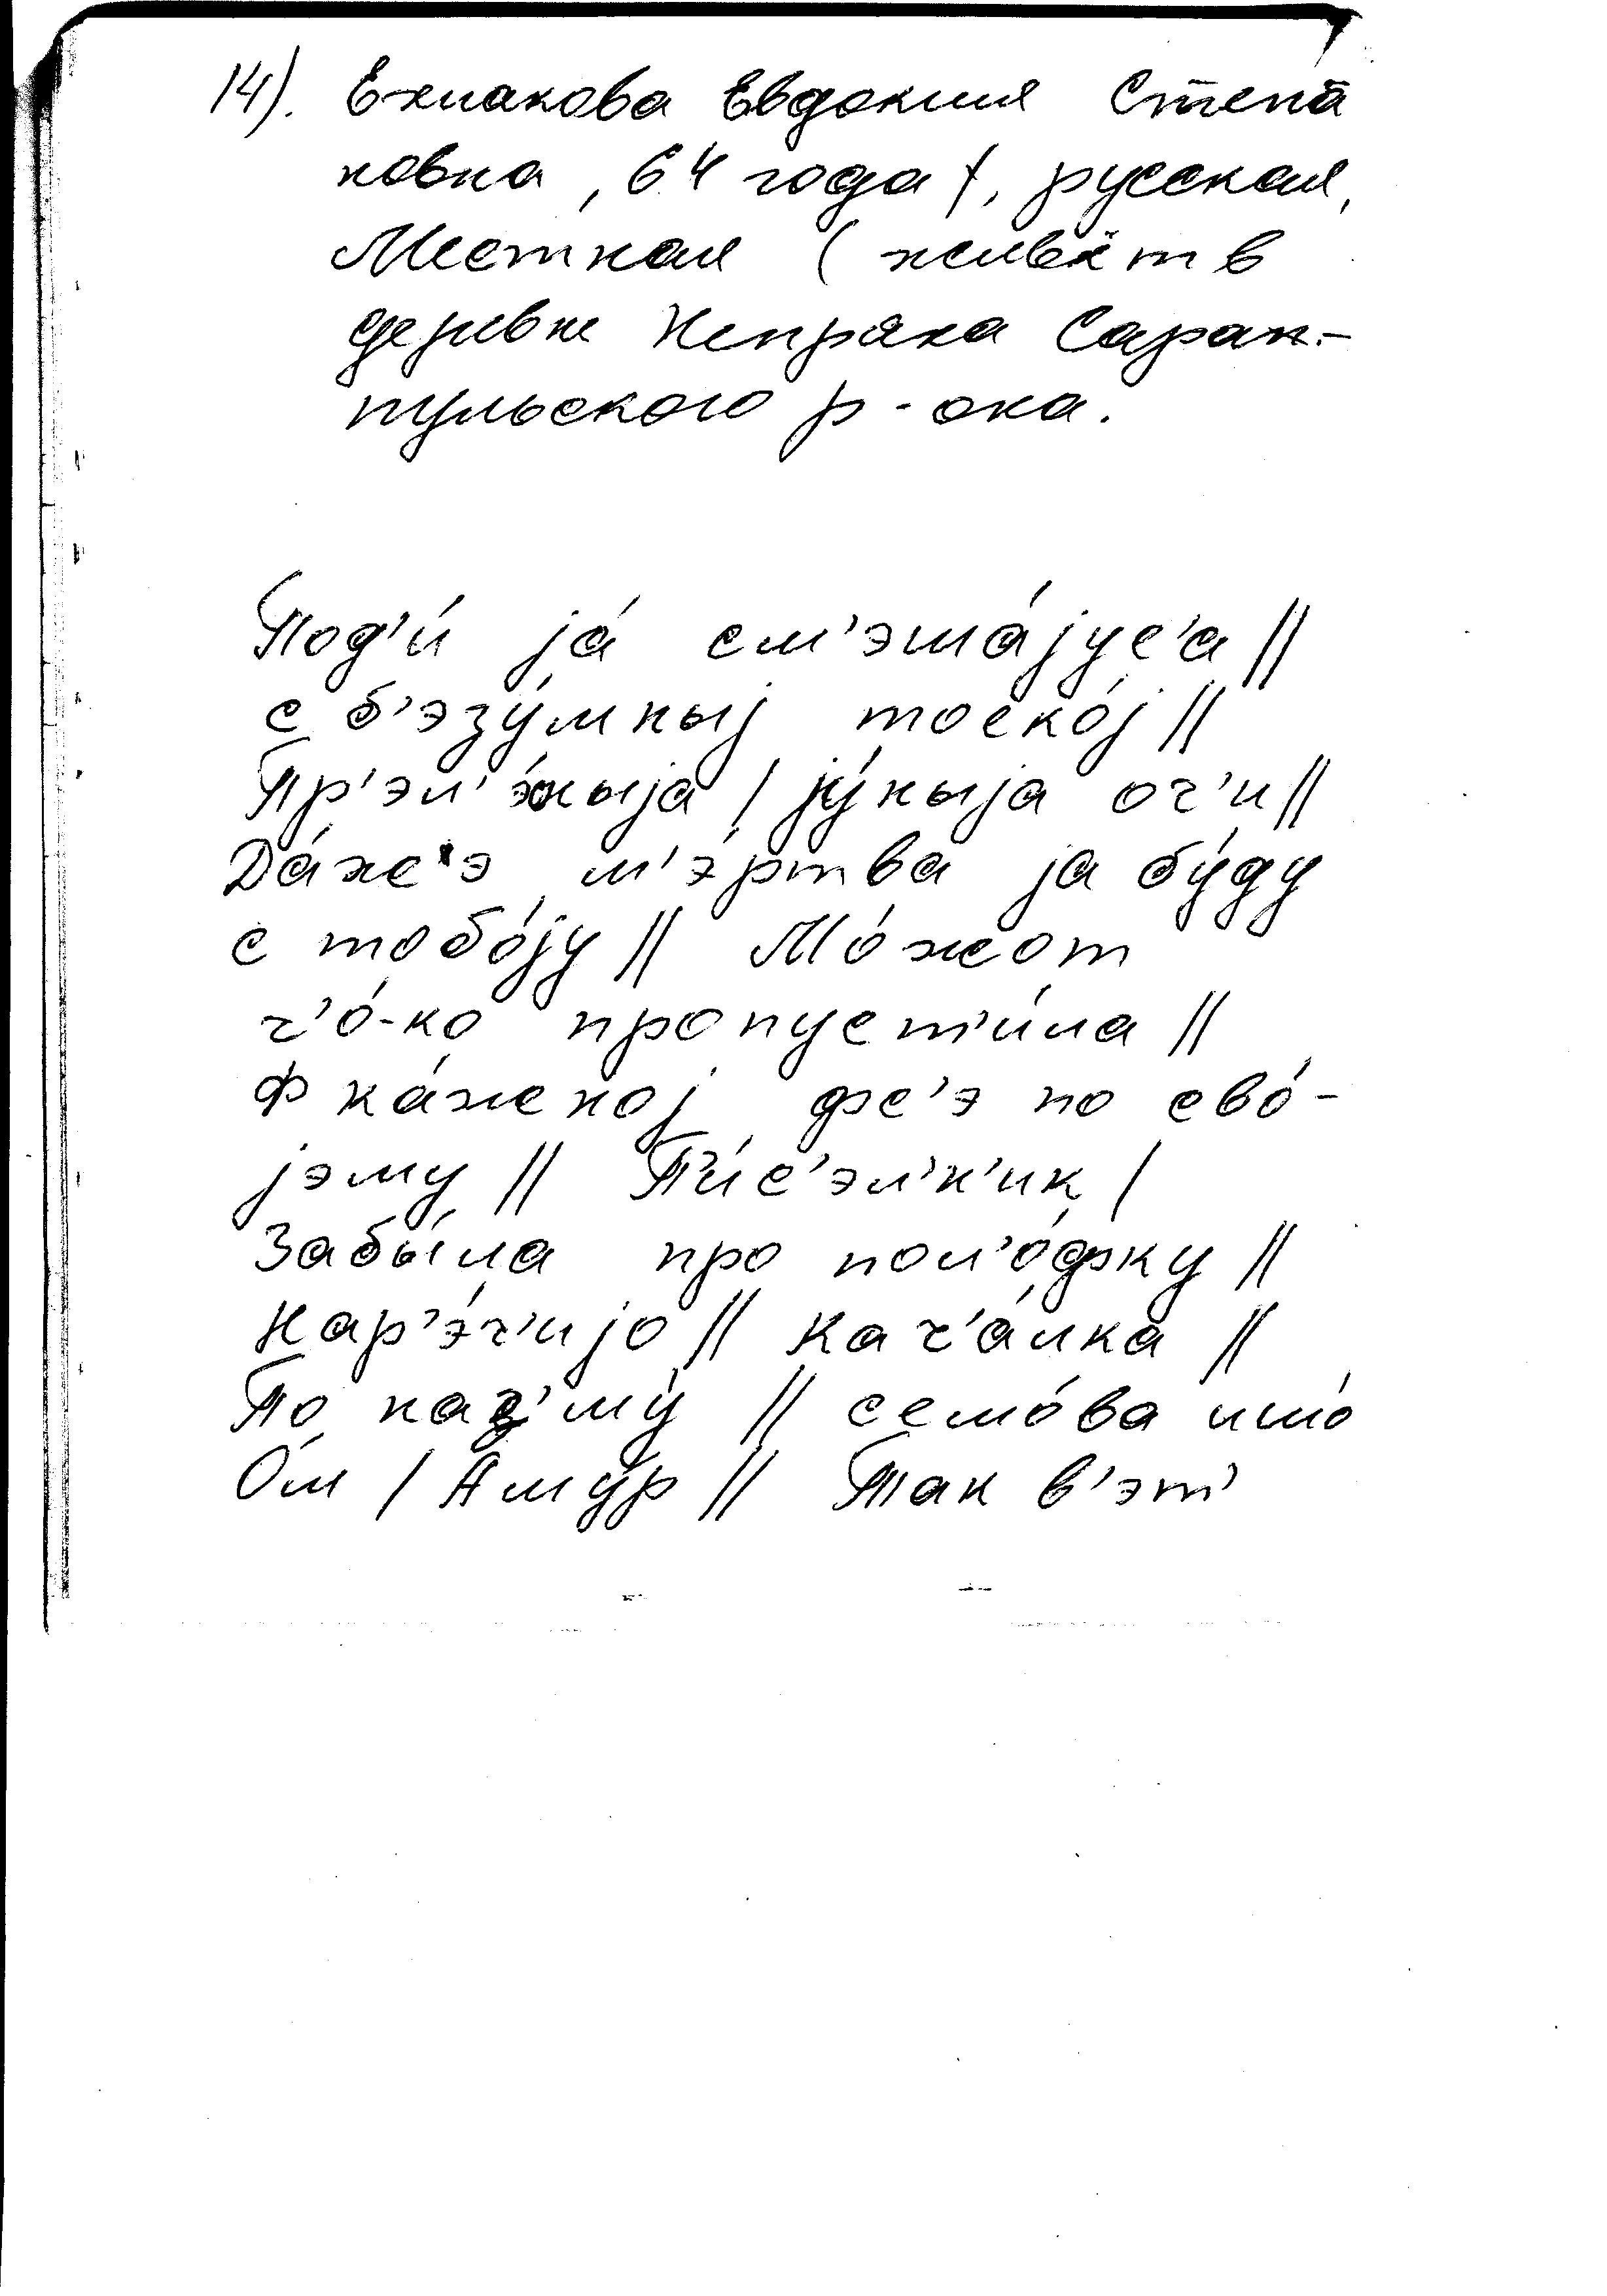 14). Ехлакова Евдокия Степа
новна, 64 года), русская,
Местная (живёт в
деревне Непряха Сарап-
пульского р-она.
Под'и́ jа́ см'эша́jус'а ||
с б'эзу́мныj тоско́j ||
Пр'эл'э́сныjа | jу́ныjа оч'и ||
Да́ж'э м'э́ртва jа бу́ду
с тобо́jу || Мо́жот
ч'о́-ко пропуст'и́ла ||
Ф ка́жноj фс'э по сво́-
jэму || П'и́с'эл'н'ик |
Забы́ла про пол'о́фку ||
Нар'э́ч'иjо || Кач'а́лка ||
По наз'му́ || ссмо́ва ишо́
О́м | Аму́р || Так в'эт'